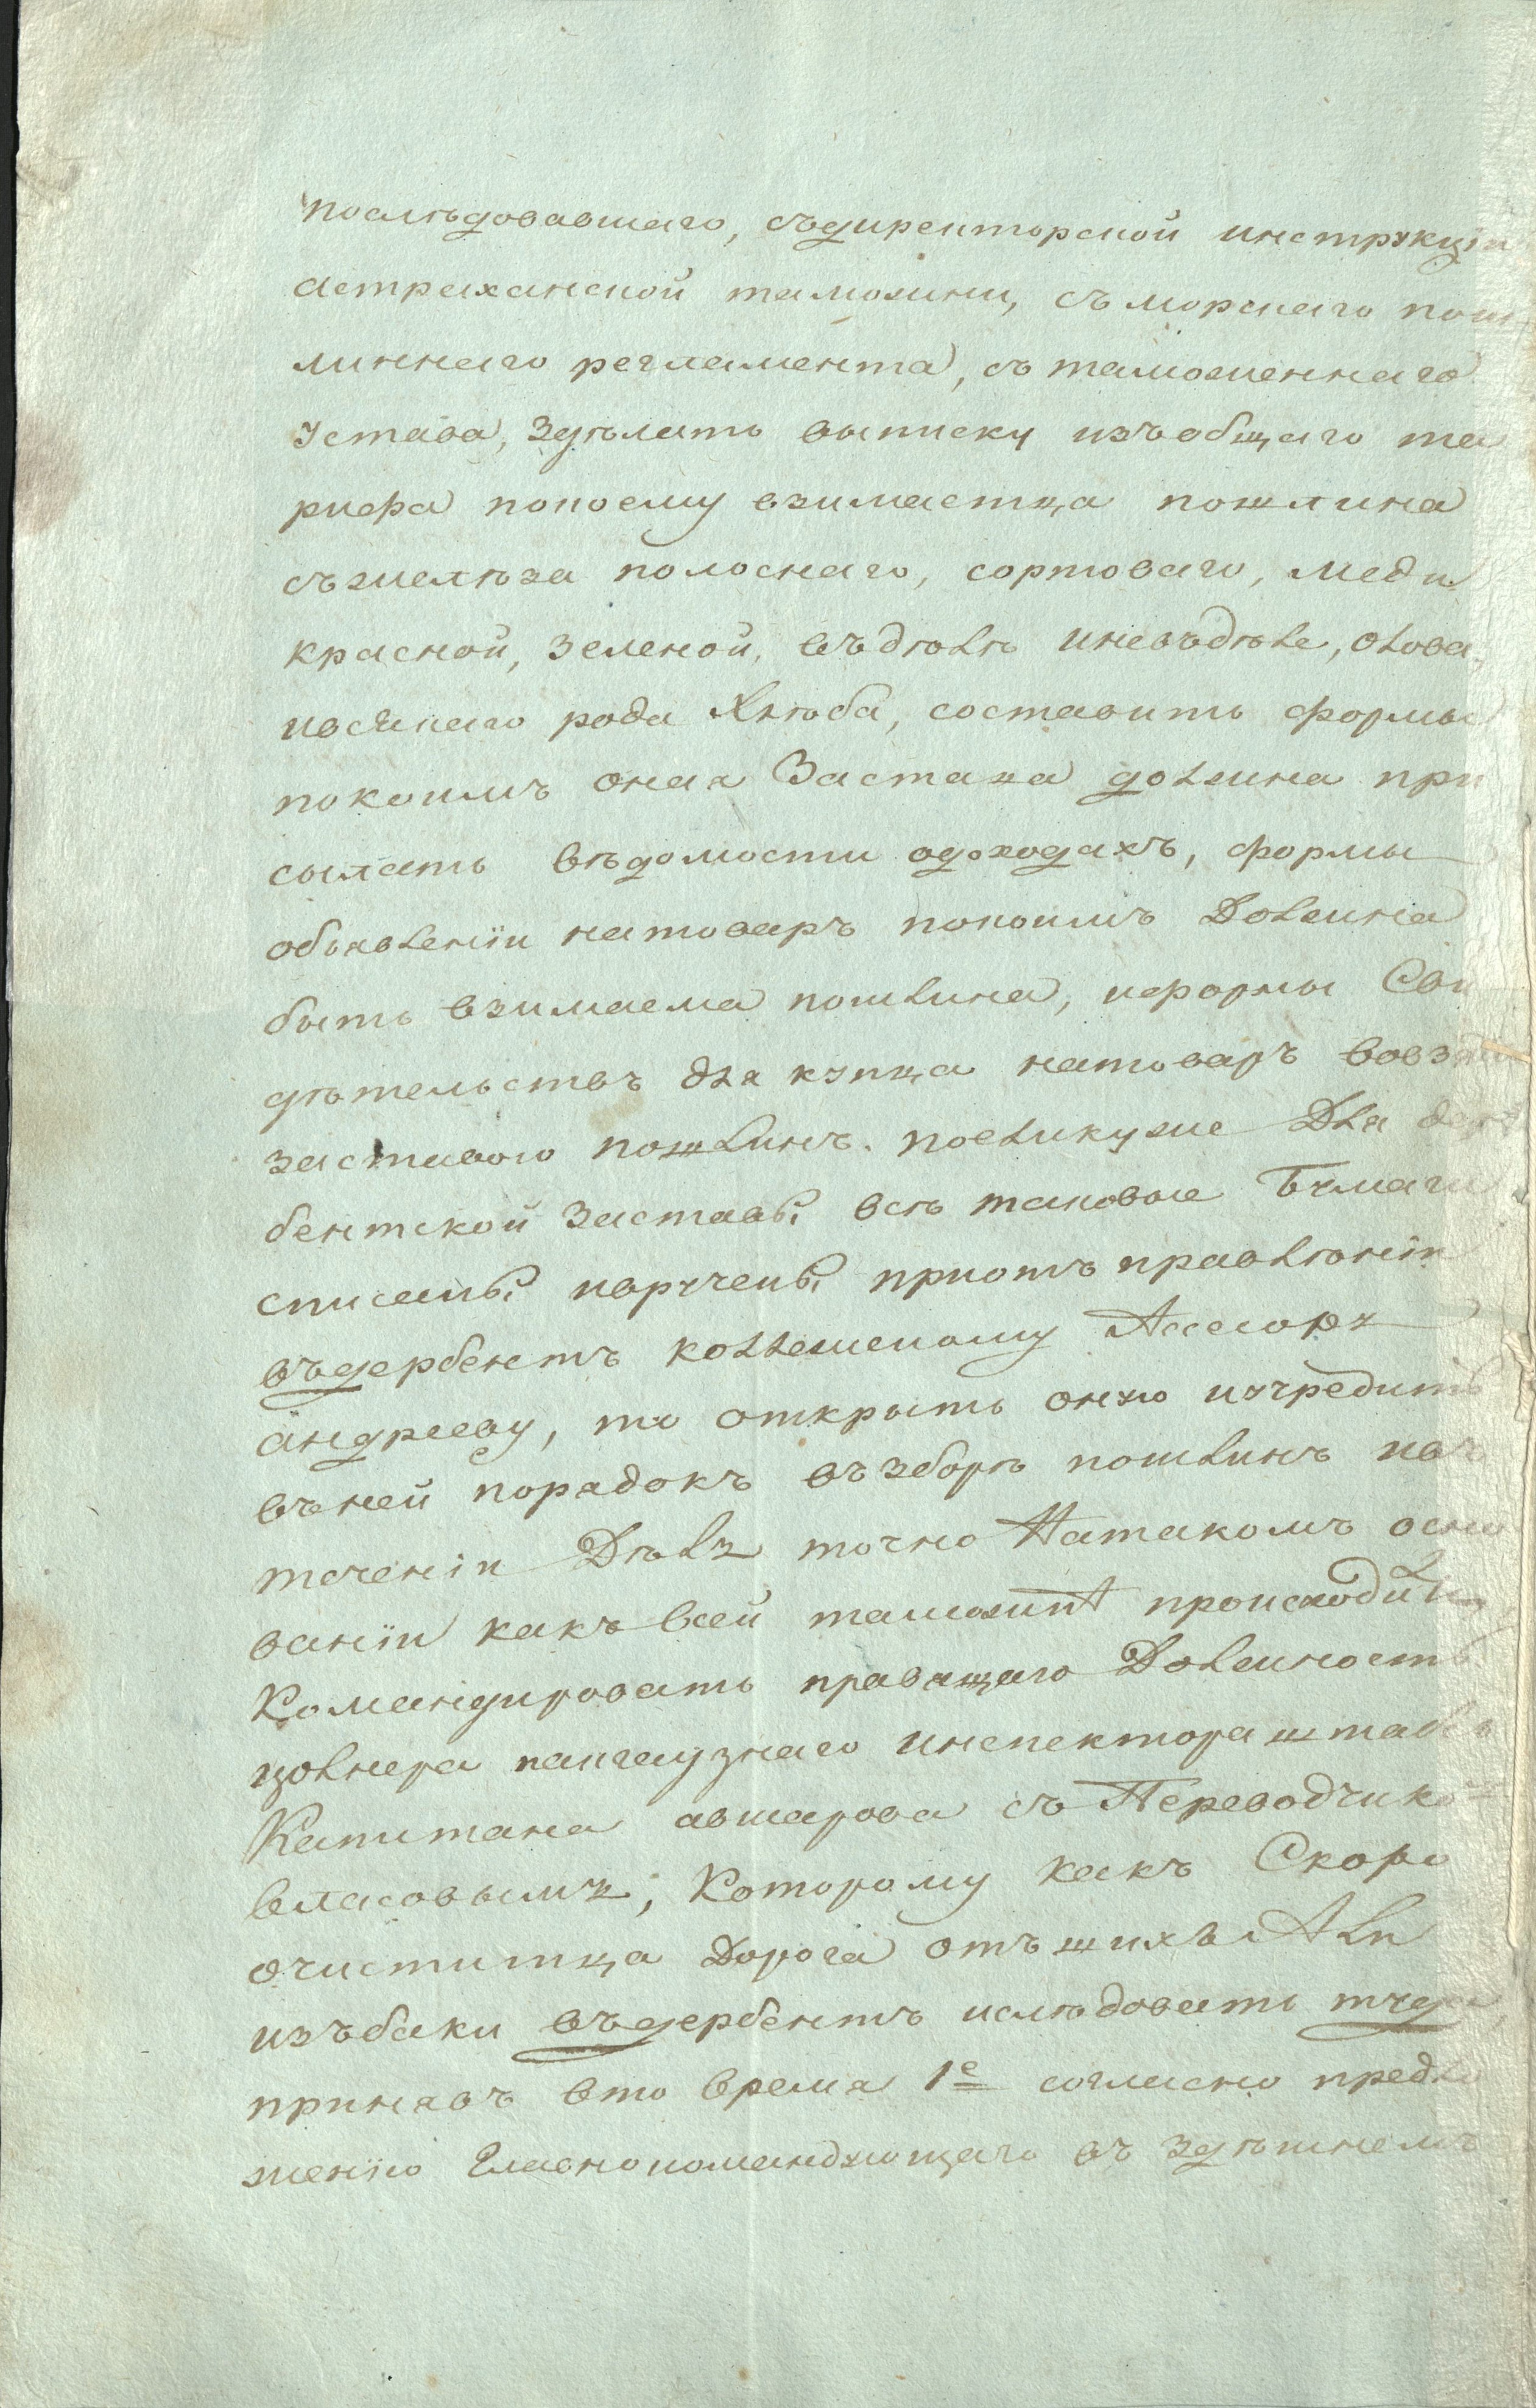 послѣдовавшаго, съдиректорской инструкціи
астраханской таможни, съ морскаго пош
линнаго регламента, съ таможеннаго
устава, здѣлать выписку изъобщаго та
рифа покоему взимаетца пошлина
съжелѣза полоснаго, сортоваго, меди
красной, зеленой, въдѣлѣ иневъдѣле, олова,
ивсякаго рода хлѣба, составить формы
покоимъ оная Застава должна при
сылать вѣдомости одоходахъ, формы
объявленіи натоваръ покоимъ Должна
быть взимаема пошлина, иформы Сви
дѣтельствъ для купца натоваръ вовзя
заставою пошлинъ. поеликуже Для дер
бентской заставы всѣ таковые Бумаги
списаны ивручены приотъ правлѣніи
въдербентъ коллежскому Асесору
андрееву, то открыть оную иучредить
въней порядокъ въ зборѣ пошлинъ ивъ
теченіи Дѣлъ точно Натакомъ осно
ваніи какъ всей таможнѣ происходилъ
Командировать правящаго Должность
цолнера пакгаузнаго инспектора штабъ
Капитана авшарова съ Переводчико
власовымъ, Которому какъ Скоро
очиститца Дорога отъ шихъ Али
изъбаки въдербентъ ислѣдовать туда,
принявъ вто время 1е согласно предло
женію Главнокомандующаго въ здѣшнемъ